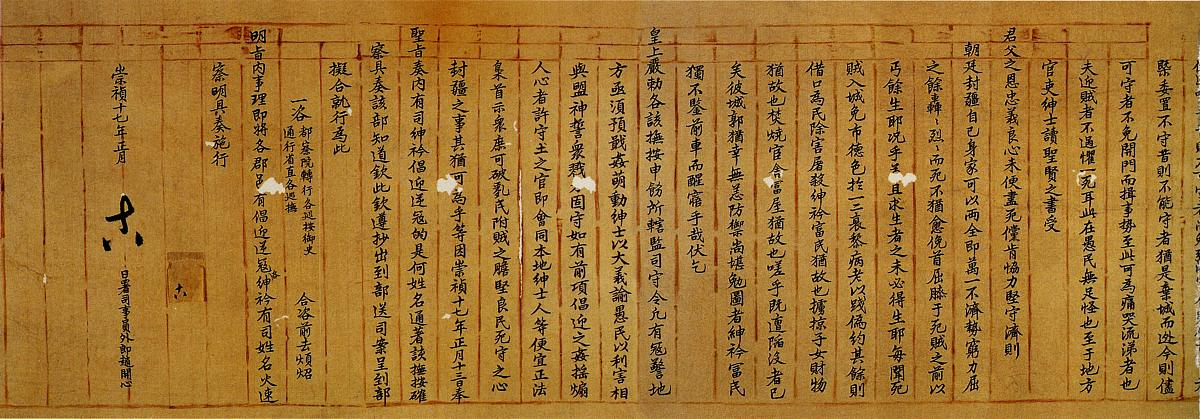 堅委置不守昔則不能守者猶是棄城而逃今則儘
可守者不免開門而揖事勢至此可為痛哭流涕者也
夫迎賊者不過懼一死耳此在愚民無足怪也至于地方
官吏紳士讀聖賢之書受
君父之恩忠義良心未便盡死儻肯協力堅守濟則
朝廷封疆自己身家可以兩全即萬一不濟勢窮力屈
之餘轟轟烈烈而死不猶愈俛首屈膝于死賊之前以
丐餘生耶況乎求生者之未必得生耶每聞死
賊入城免布德色於一三衰黎病老以踐偽約其餘則
借口為民除害屠殺紳衿富民猶故也擄掠子女財物
猶故也焚燒官舍富屋猶故也嗟乎既遭陷沒者已
矣彼城郭猶幸無恙防禦尚堪勉圖者紳衿富民
獨不鑒前車而醒寤乎哉伏乞
皇上嚴勅各該撫按申飭所轄監司守令凡有寇警地
方亟須預戢奸萌動紳士以大義諭愚民以利害相
與盟神誓眾戮固守如有前項倡迎之奸搖煽
人心者許守土之官即會同本地紳士人等便宜正法
梟首示眾庶可破亂民附賊之膽堅良民死守之心
封疆之事其猶可為乎等因崇禎十七年正月十三日奉
聖旨奏內有司紳衿倡迎逆寇的是何姓名通著該撫按確
察具奏該部知道欽此欽遵抄出到部送司案呈到部
擬合就行為此
一各都察院轉行各巡按御史
通行省直各巡撫
合咨前去煩炤
明旨內事理即將各郡邑有倡迎逆寇紳衿有司姓名火速
察明具奏施行
崇禎十七年正月
日署司事員外郎趙開心